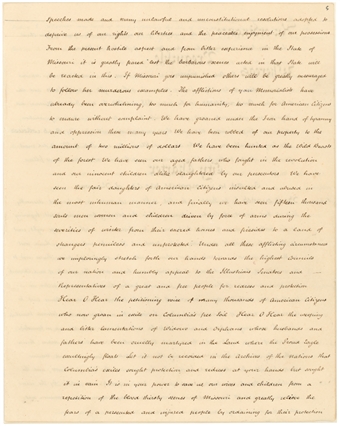 6
Speeches made and many unlawful and unconstitutional resolutions adopted to
deprive us of our rights as liberties and the peaceable enjoyment of our possessions
From the present hostile aspect and from bitter experience in the State of
Missouri it is greatly feared that the barbarous scenes acted in that State will
be reacted in this. If Missouri goes unpunished others will be greatly encouraged
to follow her murderous examples. The afflictions of your Memorialists have
already been overwhelming, too much for humanity, too much for American Citizens
to endure without complaint. We have groaned under the Iron hand of tyranny
and oppression these many years We have been robbed of our property to the
amount of two millions of dollars We have been hunted as the Wild Beasts
of the forest We have seen our aged fathers who fought in the revolution
and our innocent children alike slaughtered by our persecutors We have
seen the fair daughters of American Citizens insulted and abused in
the most inhuman manner, and finally we have seen fifteen thousand
souls men women and children driven by force of arms during the
severities of winter from their sacred homes and firesides to a land of
strangers penniless and unprotected. Under all these afflicting circumstances
we imploringly stretch forth our hands towards the highest Councils
of our nation and humbly appeal to the Illustrious Senators and
Representatives of a great and free people for redress and protection
Hear O Hear the petitioning voice of many thousands of American Citizens
who now groan in exile on Columbia's free Soil Hear O Hear the weeping
and bitter lamentations of Widows and Orphans whose husbands and
fathers have been cruelly martyred in the Land where the Proud Eagle
exultingly floats Let it not be recorded in the Archives of the nations that
Columbia's exiles sought protection and redress at your hands but sought
it in vain It is in your power to save us our wives and children from a
repetition of the blood thirsty scenes of Missouri and greatly relieve the
fears of a persecuted and injured people by ordaining for their protection